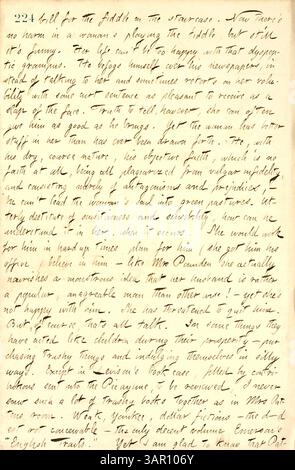 224 bill for the fiddle on the staircase. Now there's
no harm in a woman's playing the fiddle but still
it's funny. Her life can't be too happy with that dyspep-
tic grampus. He befogs himself over his newspapers, in-
stead of talking to her and sometimes retorts on her volu-
bility with some curt sentence as pleasant to receive as a
slap of the face. Truth to tell, however, she can often
give him as good as he brings. Yet the woman has better
stuff in her than has ever been drawn forth. He, with
his dry, coarse nature, his objective faith, which is no
faith at all, being all plagiarized from vulgar infidelity,
and consisting merely of antagonisms and prejudices,
he can't lead the woman's soul into green pastures. Ut-
terly destitute of and sensibility, how can he
understand it in her, when it occurs. She would work
for him in hard up times, plan for him, she got him his
office, I believe in him — like Mrs she actually
nourishes a monstrous idea that her husband is rather
a popular, agreeable man than otherwise! — yet she's
not happy with him. She has threatened to quit him.
But, of course, that's all talk. In some things they
have acted like children during their prosperity — pur-
chasing trashy things and indulging themselves in silly
ways. Except in book case, filled by contri-
butions sent into the Picayune, to be reviewed I never
saw such a lot of trashy books together as in Mrs Pat-
ten's room. Weak, Yankee, dollar fictions — the d—d-
est not conceivable — the only decent volume Emerson's
"English Traits." Yet I am glad to know that Pat-